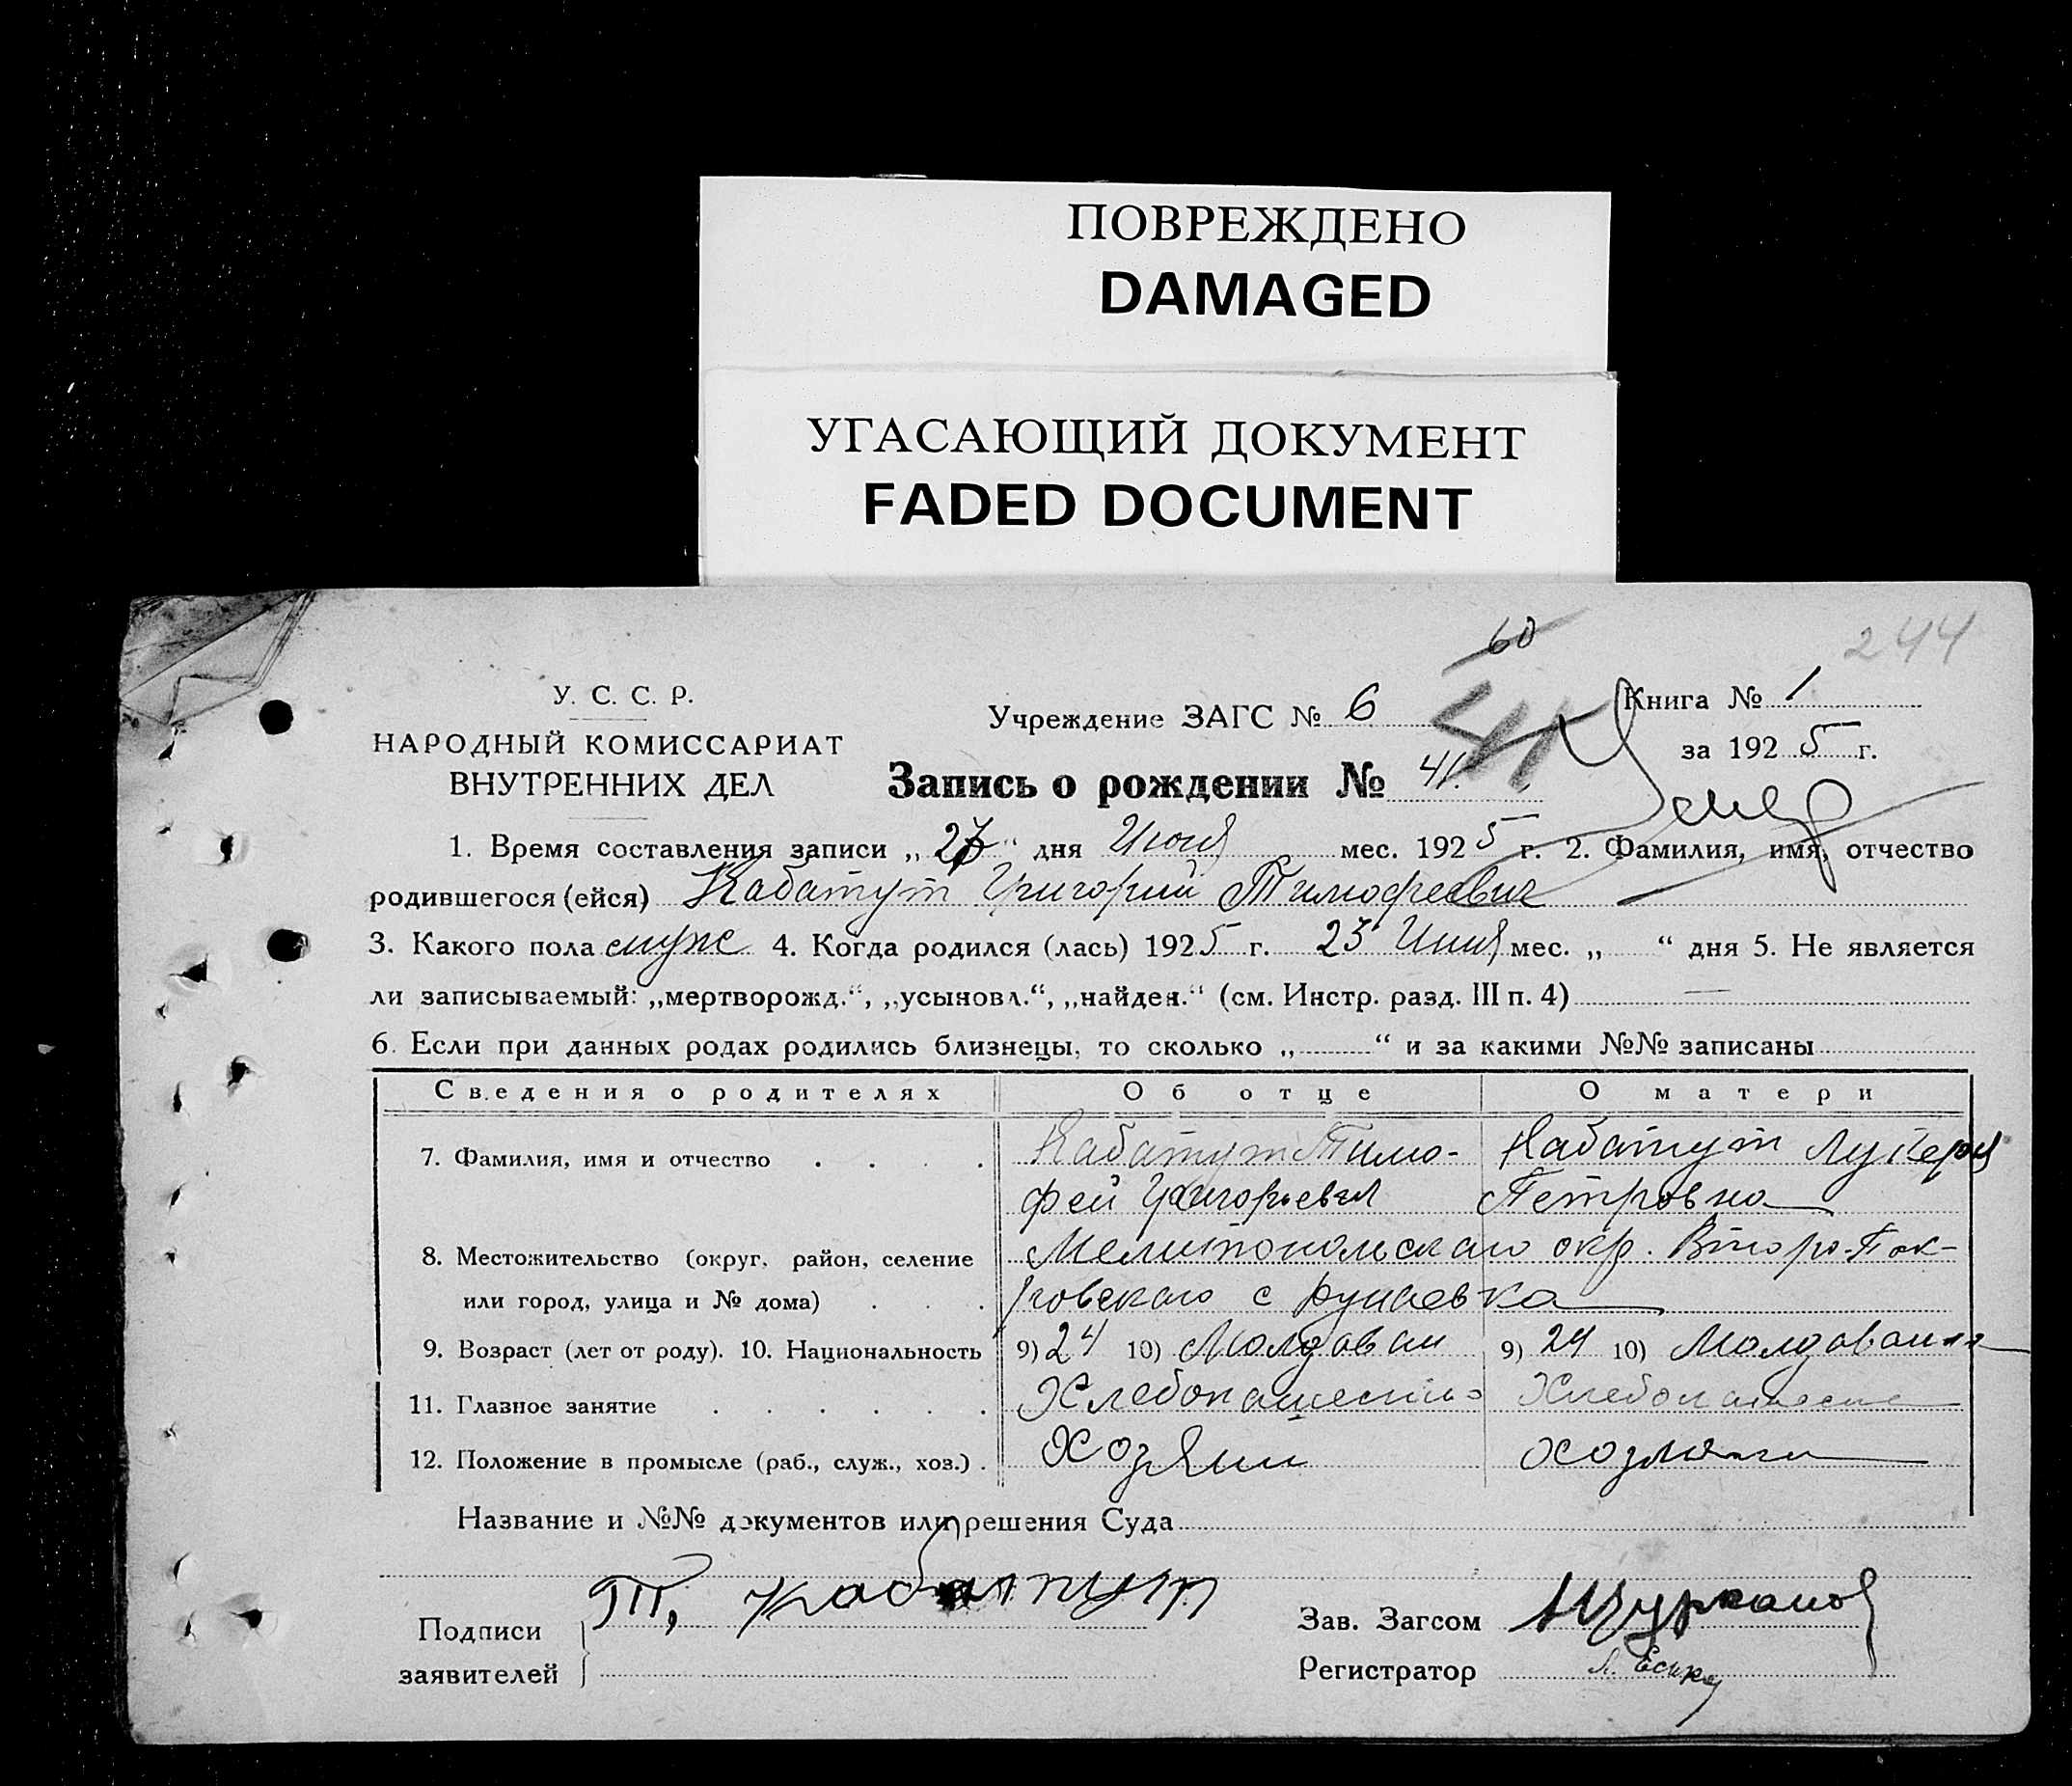 ПОВРЕЖДЕНО
DAMAGED
УГАСАЮЩИЙ ДОКУМЕНТ
FADED DOCUMENT
60
244
У. С. С. Р.
НАРОДНЫЙ КОМИССАРИАТ
ВНУТРЕННИХ ДЕЛ
Учреждение ЗАГС № 6
41
Книга № 1
за 1925 г.
Запись о рождении № 41.
Умер
1. Время составления записи „27“ дня Июня мес. 1925 г. 2. Фамилия, имя, отчество
родившегося (ейся) Кабатут Григорий Тимофеевич
3. Какого пола муж 4. Когда родился (лась) 1925 г. 23 Июня мес. „ “ дня 5. Не является
ли записываемый: „мертворожд.“, „усыновл.“, „найден.“ (см. Инстр. разд. III п. 4) —
6. Если при данных родах родились близнецы, то сколько „ “ и за какими №№ записаны
Сведения о родителях Об отце О матери
7. Фамилия, имя и отчество Кабатут Тимо- Кабатут Лукеря
фей Григорьевич Петровна
8. Местожительство (округ, район, селение Мелитопольскаго окр. Второ-Пок-
или город, улица и № дома) ровскаго с
9. Возраст (лет от роду). 10. Национальность 9) 24 10) Молдован 9) 24 10) Молдованка
11. Главное занятие Хлебопашество Хлебопашество
12. Положение в промысле (раб., служ., хоз.) Хозяин Хозяйка
Название и №№ документов или решения Суда
Подписи Т, Кабатут
заявителей
Зав. Загсом
Регистратор